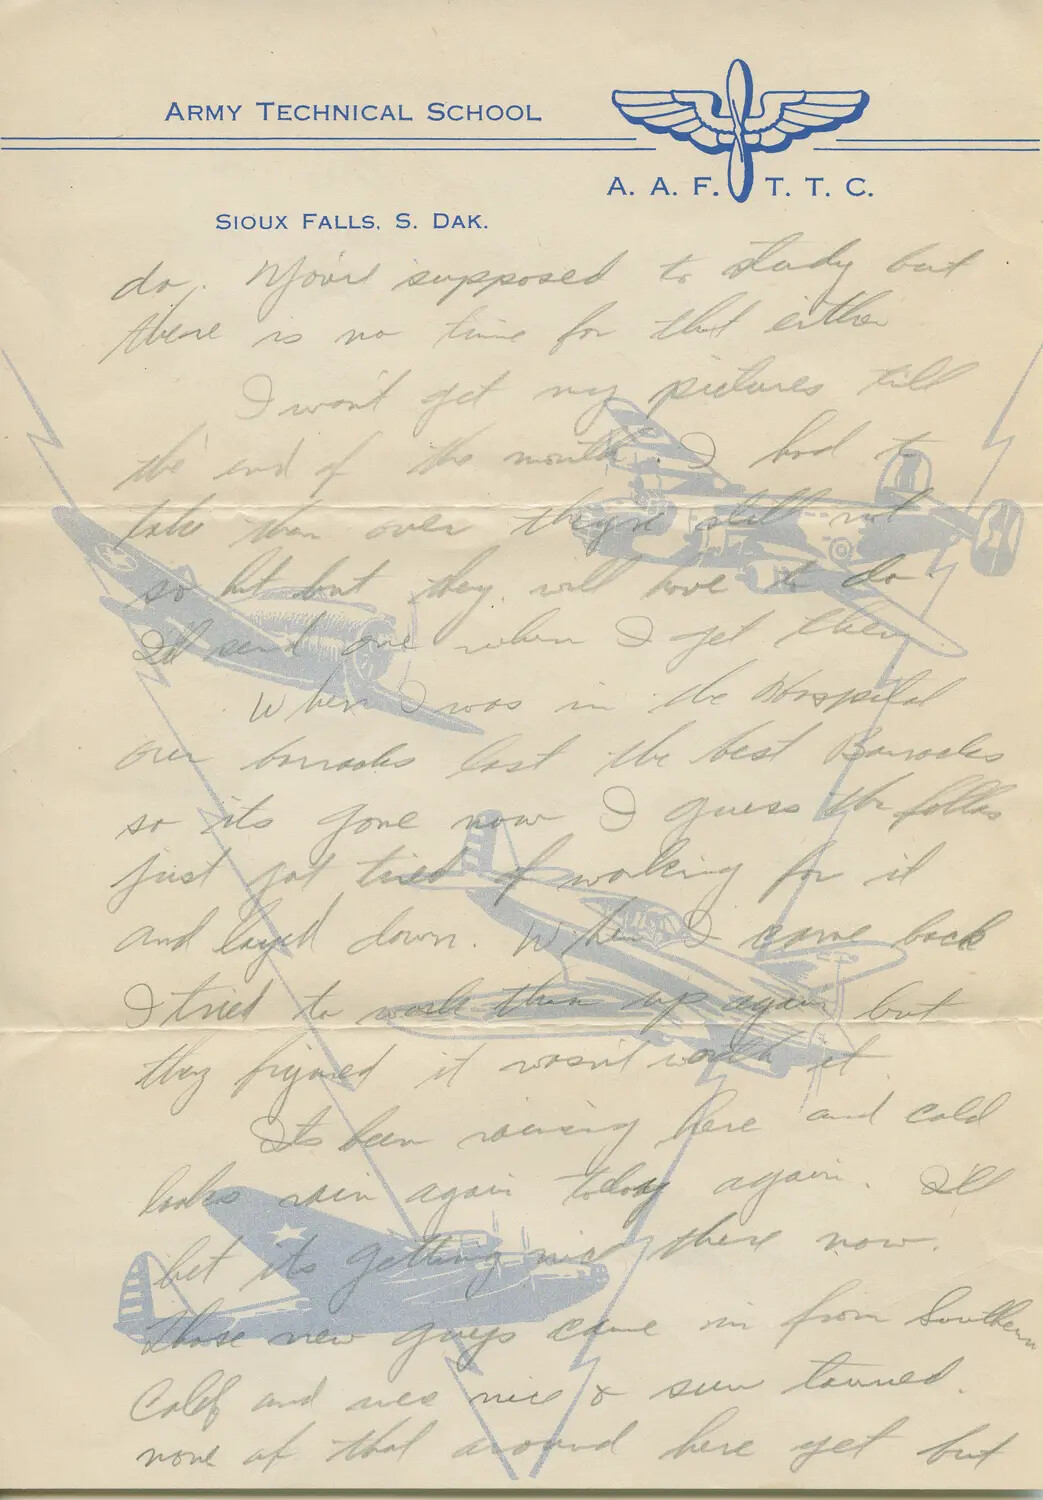 ARMY TECHNICAL SCHOOL
A. A. F. T. T. C.
SIOUX FALLS, S. DAK.
do. You're supposed to study but
there is no time for that either
I won't get my pictures till
the end of the month. I had to
take them over they're still not
so hot but they will have to do.
I'll send one when I get them
When I was in the Hospital
our barracks lost the best Barracks
so its gone now I guess the fellas
just got tried of working for it
and layed down. When I came back
I tried to work them up again but
they figured it wasn't worth it
Its been raining here and cold
looks rain again today again. Ill
bet its getting nice there now.
Those new guys came in from Southern
Calif and nice & sun tanned.
none of that around here yet but